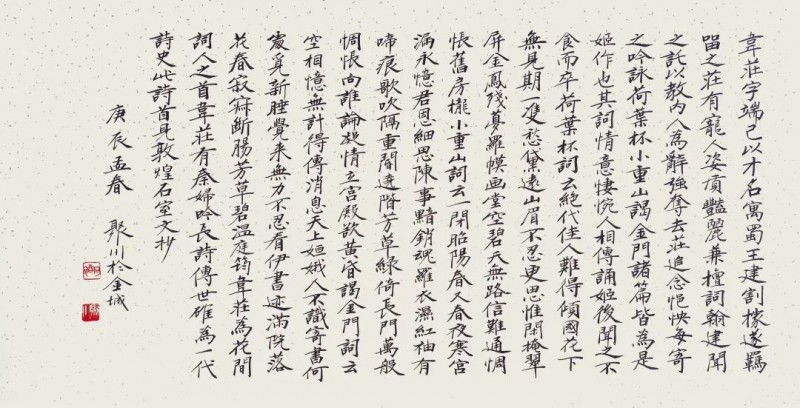 韋莊字端己以才名寓蜀王建割據遂羈
留之莊有寵人姿質豔麗兼擅詞翰建聞
之託以教內人為辭強奪去莊追念悒怏每寄
之吟詠荷葉杯小重山謁金門諸篇皆為是
姬作也其詞情意悽惋人相傳誦姬後聞之不
食而卒荷葉杯詞云絕代佳人難得傾國花下
無見期一雙愁黛遠山眉不忍更思惟閑掩翠
屏金鳳殘夢羅幙画堂空碧天無路信難通惆
悵舊房櫳小重山詞云一閉昭陽春又春夜寒宮
漏永憶君恩細思陳事黯銷魂羅衣濕紅袖有
啼痕歌吹隔重閽遶階芳草綠倚長門萬般
惆悵向誰論凝情立宮殿欲黃昏謁金門詞云
空相憶無計得傳消息天上姮娥人不識寄書何
處覓新睡覺來無力不忍看伊書迹滿院落
花春寂寂斷腸芳草碧溫庭筠韋莊為花間
詞人之首韋莊有秦婦吟長詩傳世確為一代
詩史此詩首見敦煌石室文抄
庚辰孟春 聚川於金城